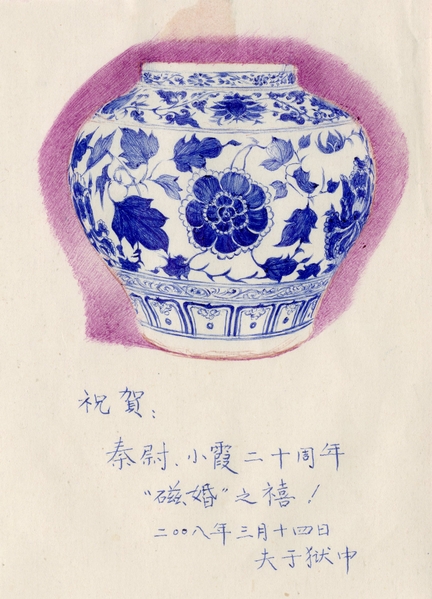 祝賀：
秦尉、小霞二十周年
“磁婚”之禧！
二〇〇八年三月十四日
夫于狱中